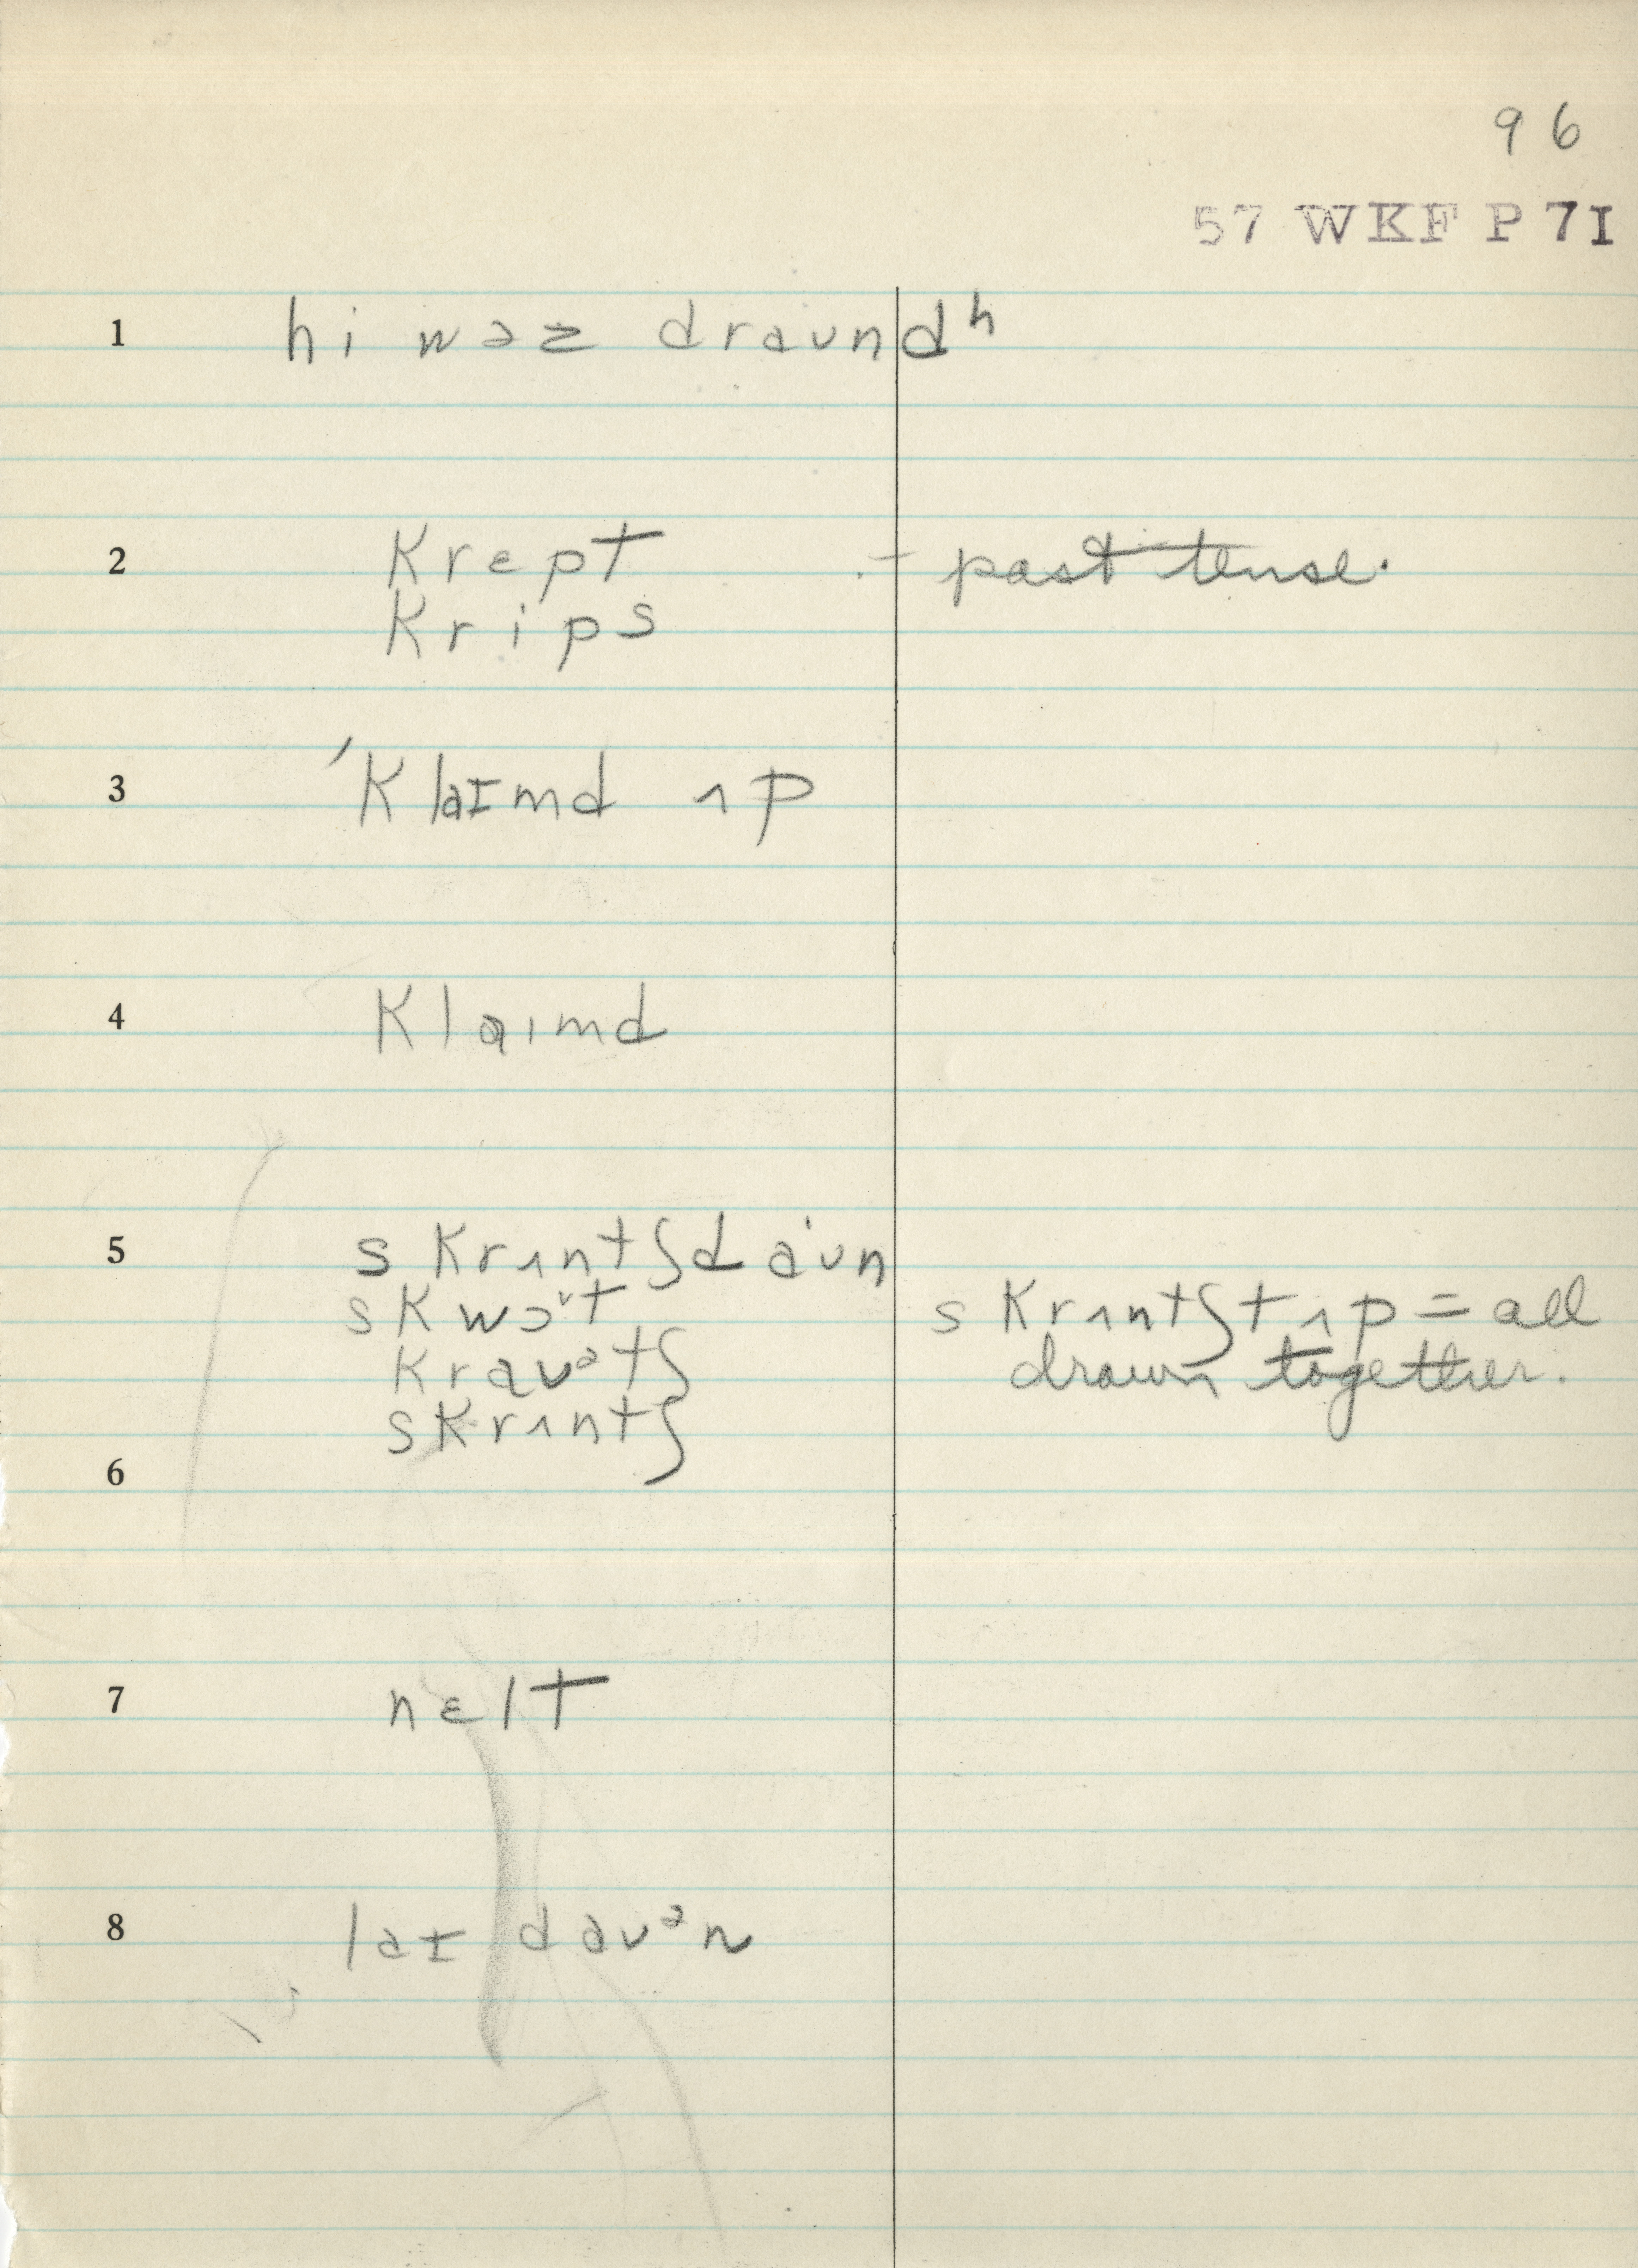 96
57 WKF P 7I
1 hi wəz draundʰ
2 krɛpt - past tense.
krips
3 ˈklaɪmd ʌp
4 klaɪmd
5 skrʌntʃ daˈun
skwɔˈt
skrʌntʃt ʌp = all
kraʊᵊtʃ
drawn together.
skrʌntʃ
6
7 nɛlt
8 laɪ daʊᵊn